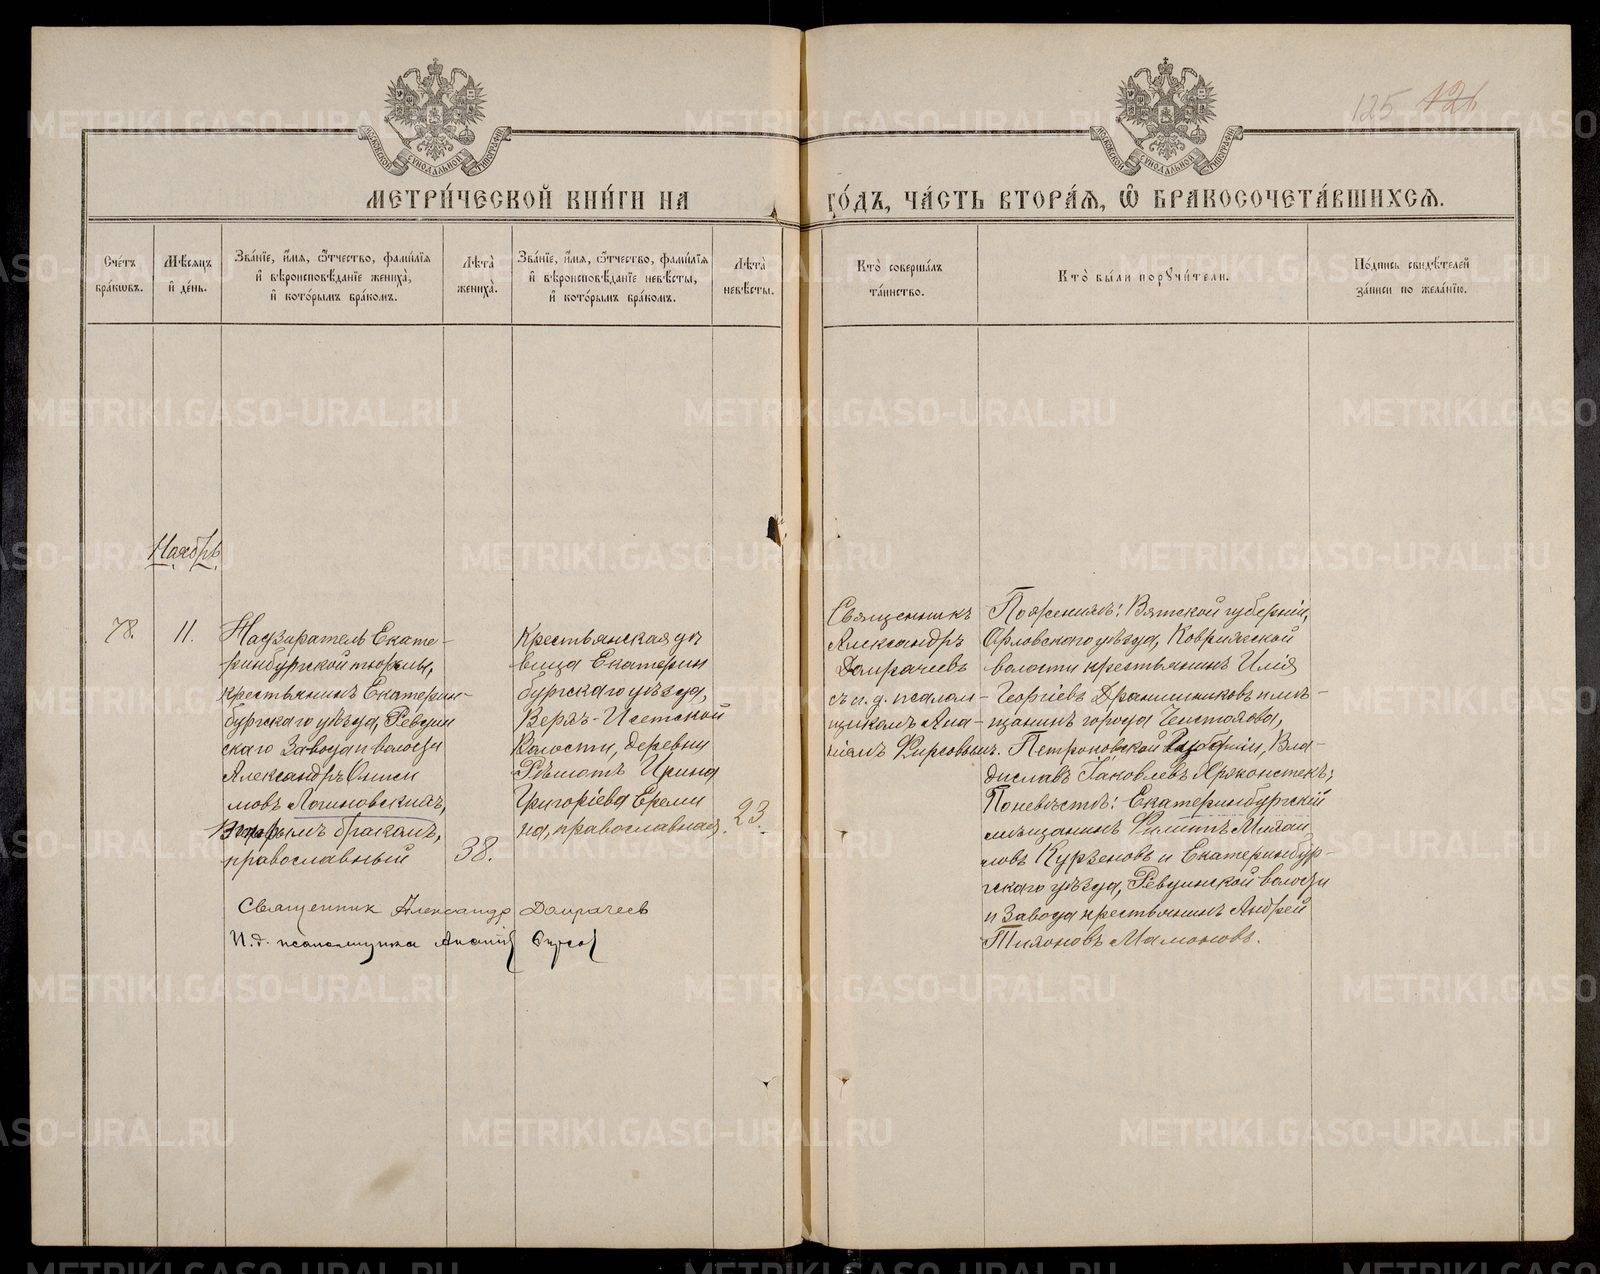 125 126
МЕТРИ́ЧЕСКОЙ КНИ́ГИ НА ГО́ДЪ, ЧА́СТЬ ВТОРА́Я, Ѡ БРАКОСОЧЕТА́ВШИХСЯ.
Сче́тъ бра́кωвъ.
Мѣ́сяцъ и́ де́нь.
Зва́нїе, и́мя, ѻ́тчество, фами́лїя и́ вѣроисповѣ́данїе жениха̀, и́ кото́рымъ бра́комъ.
Лѣ́та жениха̀.
Зва́нїе, и́мя, ѻ́тчество, фами́лїя и́ вѣроисповѣ́данїе невѣ́сты, и́ кото́рымъ бра́комъ.
Лѣ́та невѣ́сты.
Кто̀ соверша́лъ та́инство.
Кто̀ бы́ли порꙋчи́тели.
По́дпись свидѣ́телей за́писи по жела́нїю.
Ноябрь
78.
11.
Надзиратель Екате-
ринбургской тюрьмы,
крестьянинъ Екатерин-
бургскаго уѣзда, Ревдин
скаго Завода и волости
АлександръОниси
мовъ Логиновскихъ,
Вторымъ бракомъ,
православный
38.
Крестьянская дѣ
вица Екатерин
бургскаго уѣзда,
Верхъ-Исетской
Волости, деревни
Рѣшотъ Ирина
Григоріева Ереми
на, православная
23.
Священникъ
Александръ
съ и. д. псалом-
щикомъ Ана-
ніемъ Фирсовымъ.
По женихѣ: Вятской губерніи,
Орловскаго уѣзда,
волости крестьянинъ Илія
Георгіевъ Дранишниковъ и мѣ-
щанинъ города
Петроковской Губерніи, Вла-
диславъ Іаковлевъ
По невѣстѣ: Екатеринбургскій
мѣщанинъ Филиппъ Михаи
ловъ Курзеновъ и Екатеринбур-
гскаго уѣзда, Ревдинской волости
и Завода крестьянинъ Андрей
Тихоновъ Мамоновъ.
Священник Александр
И.д. псаломщика Ананій Фирсов
METRIKI.GASO-URAL.RU